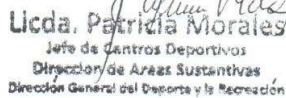 Licda. Patricia Morales
Jefe de Centros Deportivos
Direccion de Areas Sustantivas
Dirección General del Deporte y la Recreación